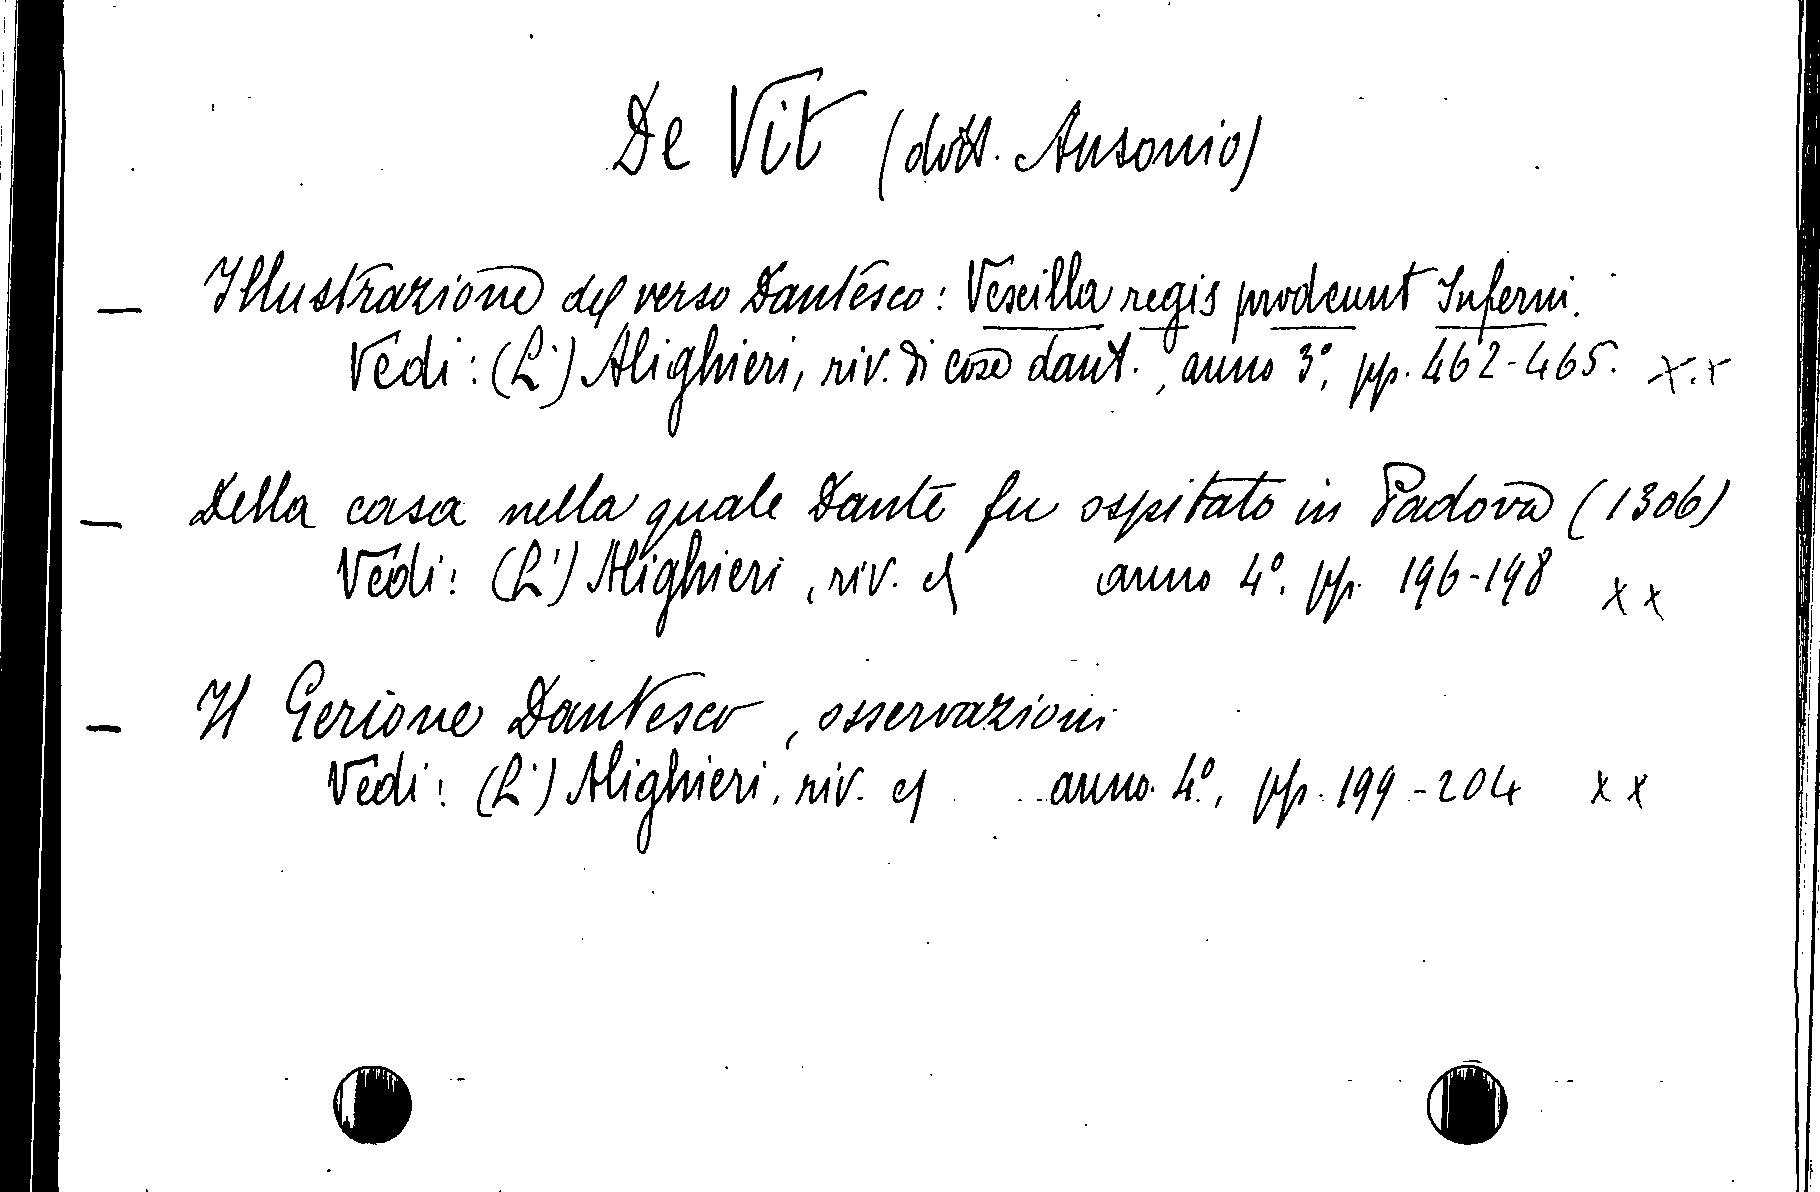 De Vit (dott. Ausonio)
— Illustrazione del verso Dantesco: Vexilla regis prodeunt Inferni.
Vedi: (L') Alighieri, riv. di cose dant., anno 3°, pp. 462-465. x.x
— Della casa nella quale Dante fu ospitato in Padova (1306)
Vedi: (L') Alighieri, riv. anno 4°. pp. 196-198 x x
— Il Gerione Dantesco, osservazioni
Vedi: (L') Alighieri, riv. anno 4°, pp. 199-204 x x